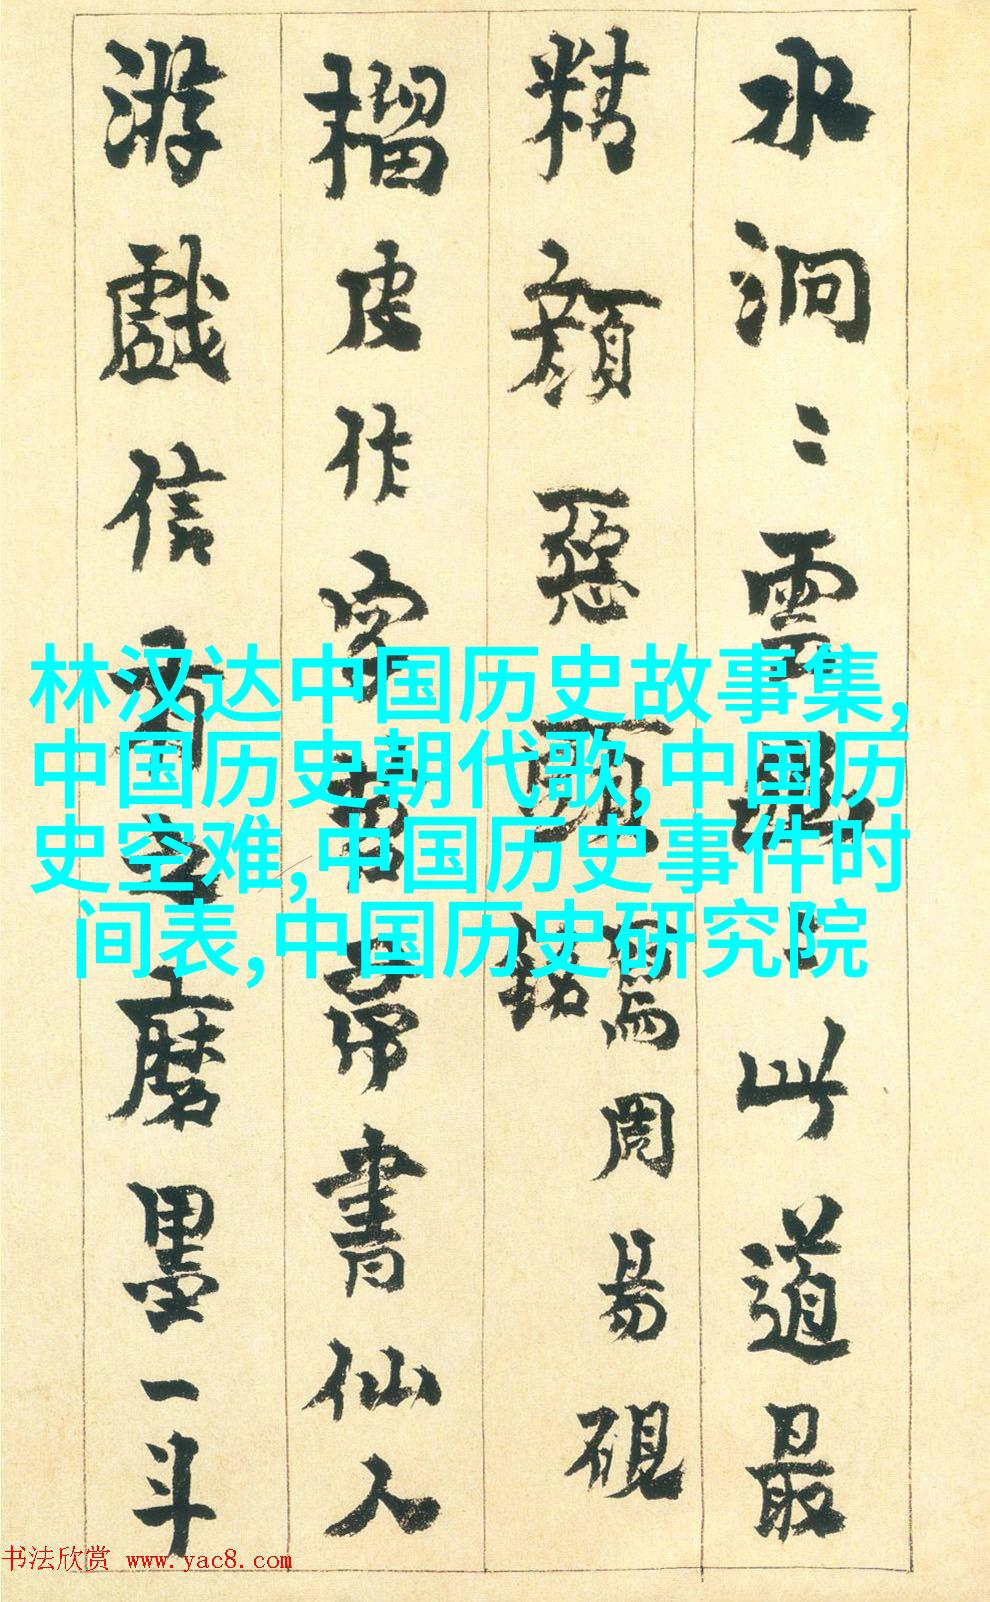 水洞〻雲〻此道最
精顏惡
銘
周易硯
榴皮作字帚書仙人
游戲信有磨墨一斗
林汉达中国历史故事集,
中国历史朝代歌,中国历
史空难,中国历史事件时
间表,中国历史研究院
书法欣赏 www.yac8.com